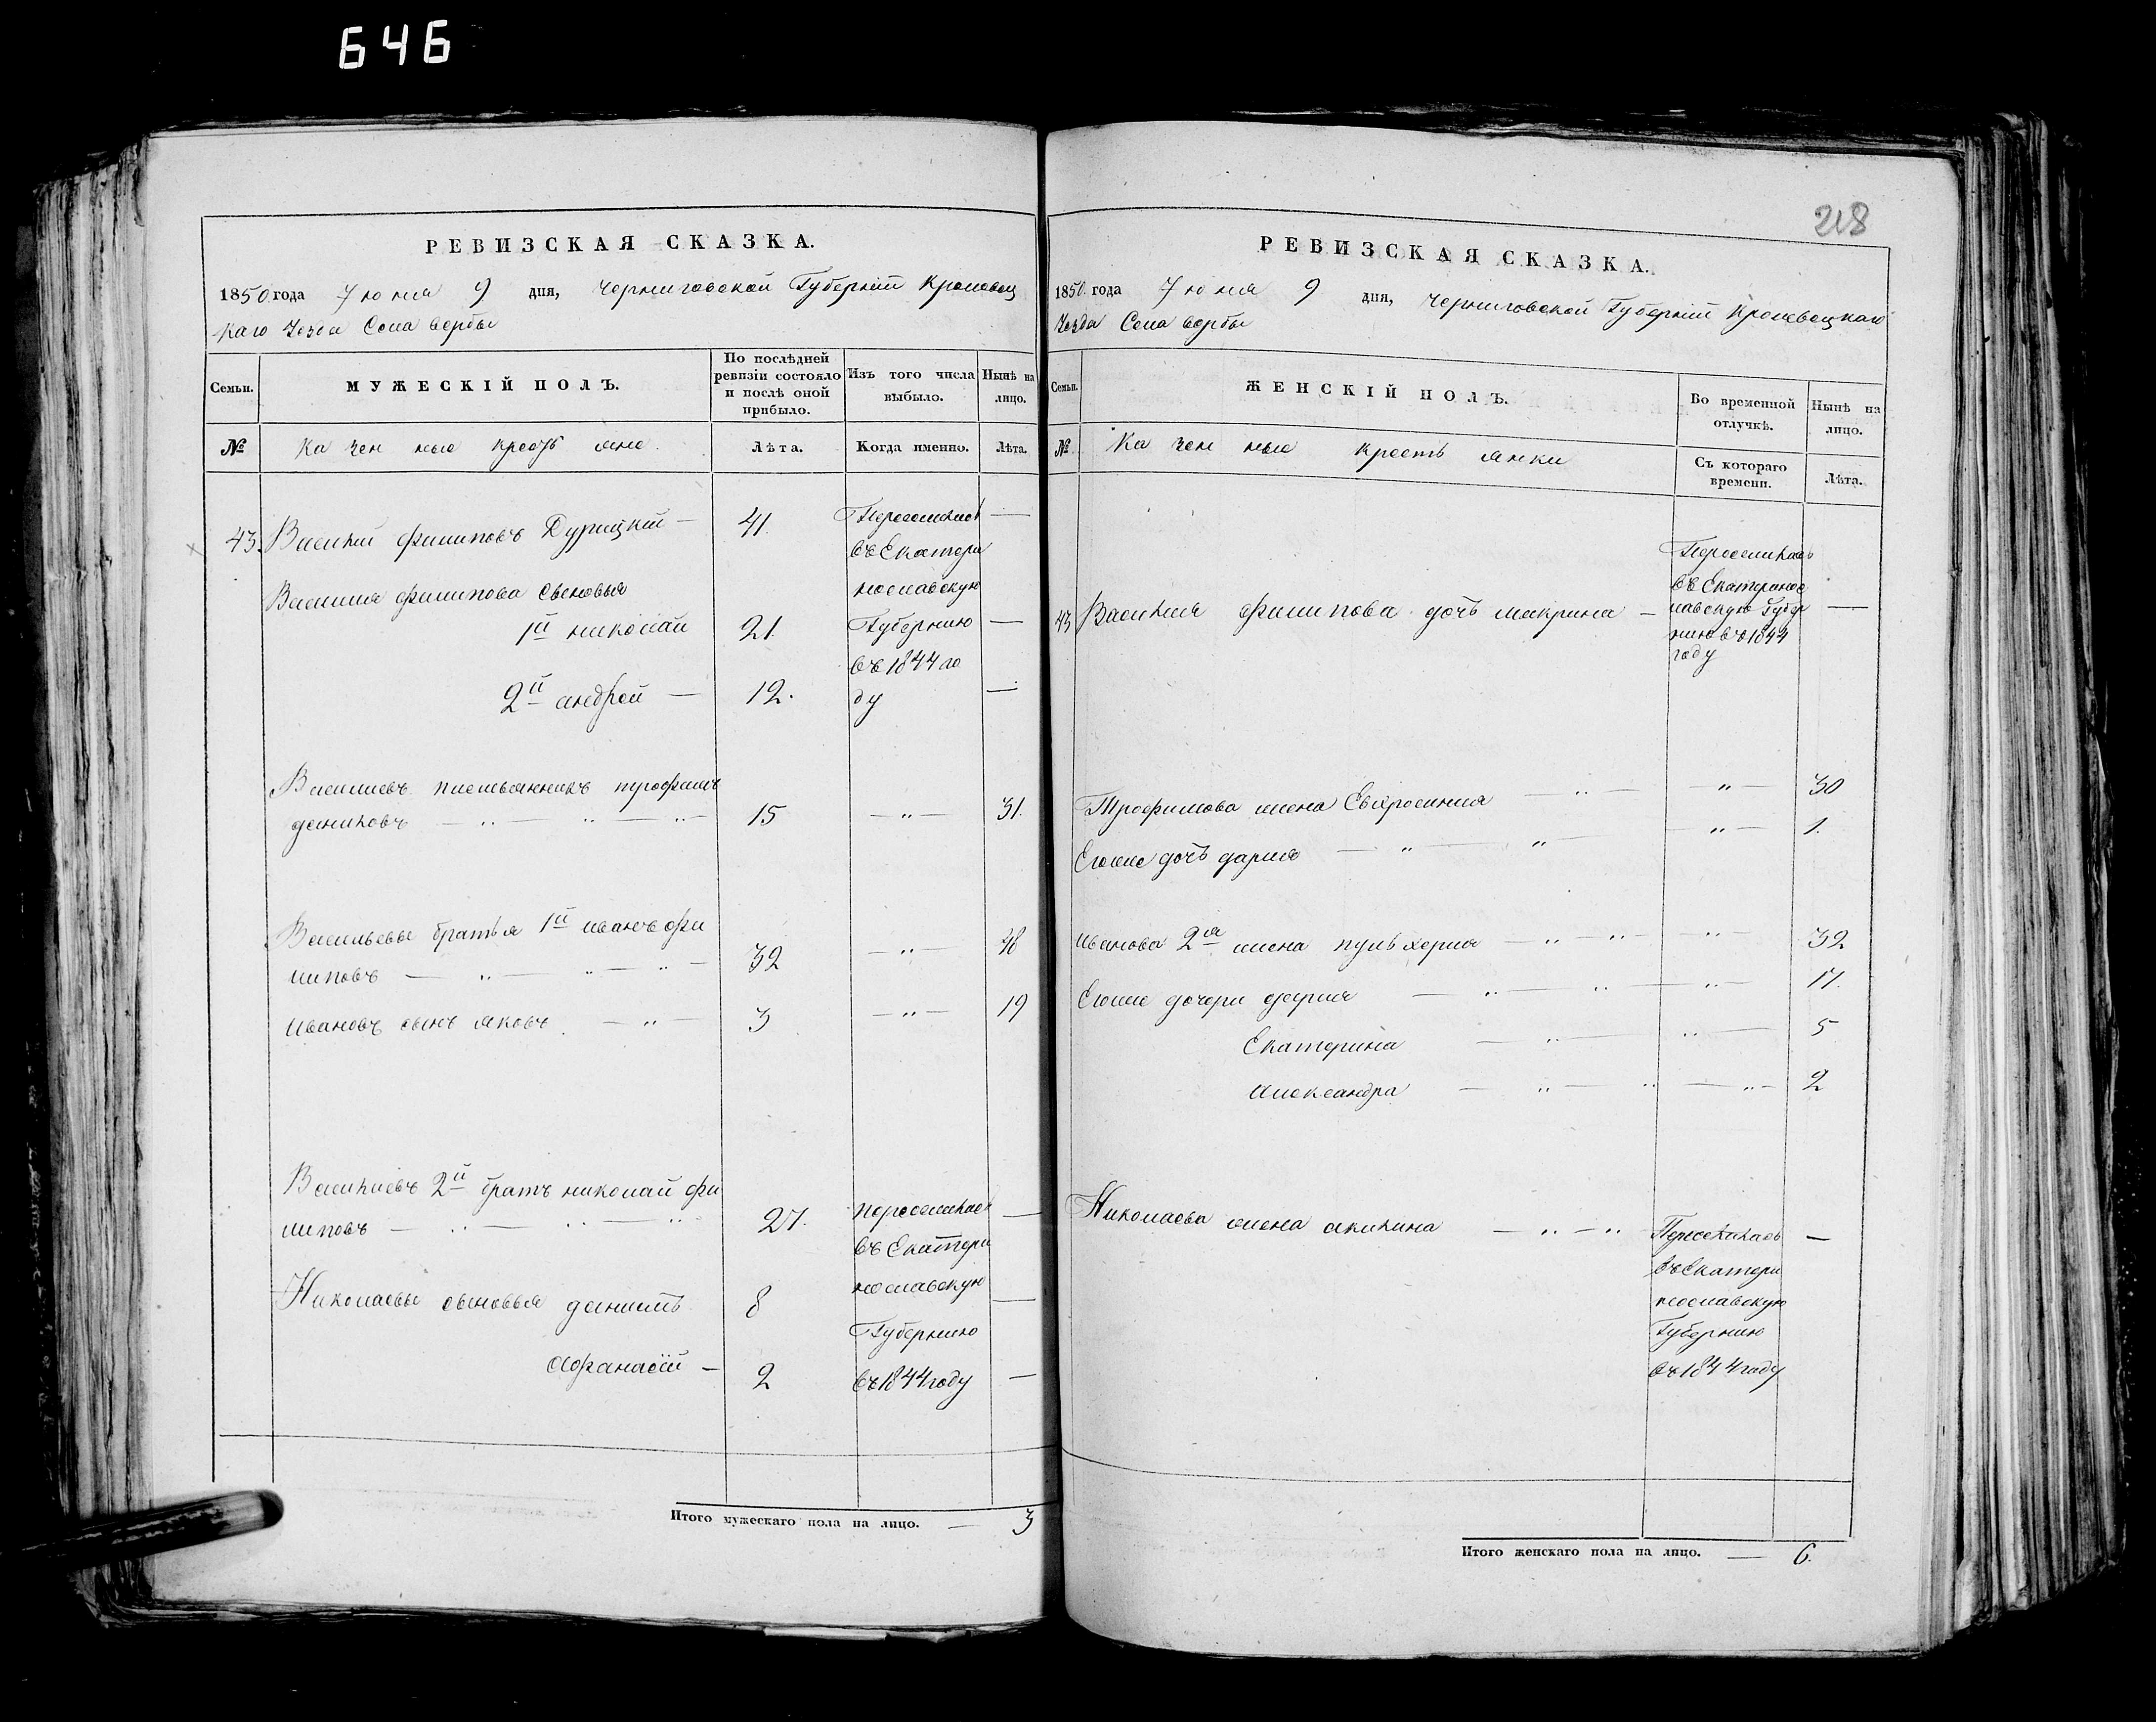 646
РЕВИЗСКАЯ СКАЗКА.
1850 года Июня 9 дня, Черниговской Губернии Кролевец
каго Уезда Села Вербы
Семьи.
МУЖЕСКІЙ ПОЛЪ.
По послѣдней ревизіи состояло и послѣ оной прибыло.
Изъ того числа выбыло.
Нынѣ на лицо.
№
Казенные крестьяне
Лѣта.
Когда именно.
Лѣта.
43. Василий Филиповъ 41. —
Переселились
въ Екатери
нославскую
Губернию
въ 1844 го
ду
Василия Филипова сыновья
1й николай 21. —
2й андрей — 12. —
Василиевъ племянникъ трофимъ
даниловъ 15 — „ — 31.
Васильевы братья 1й иванъ фи
липовъ 32 — „ — 48
Ивановъ сынъ яковъ 3 — „ — 19
Василиевъ 2й братъ николай фи
липовъ 27. —
переселились
въ Екатери
нославскую
Губернию
въ 1844 году
Николаевы сыновья 8 —
Афанасій — 2 —
Итого мужескаго пола на лицо. — 3
218
РЕВИЗСКАЯ СКАЗКА.
1850. года Июня 9 дня, Черниговской Губерніи Кролевецкаго
Уезда Села Вербы
Семьи.
ЖЕНСКІЙ ПОЛЪ.
Во временной отлучкѣ.
Нынѣ на лицо.
№
Казенные крестьянки
Съ котораго времени.
Лѣта.
43 Василия Филипова дочь макрина — —
Переселилась
въ Екатеринос
лавскую Губер
нию въ 1844
году
Трофимова жена Евфросиния — „ — 30
Егоже дочь дария — „ — 1.
Иванова 2я жена пульхерия — „ — 32
Егоже дочери — „ — 17.
Екатерина — „ — 5
Александра — „ — 2
Николаева жена акилина — „ — „ —
Переселилась
въ Екатери
нославскую
Губернию
въ 1844 году
Итого женскаго пола на лицо. — 6.